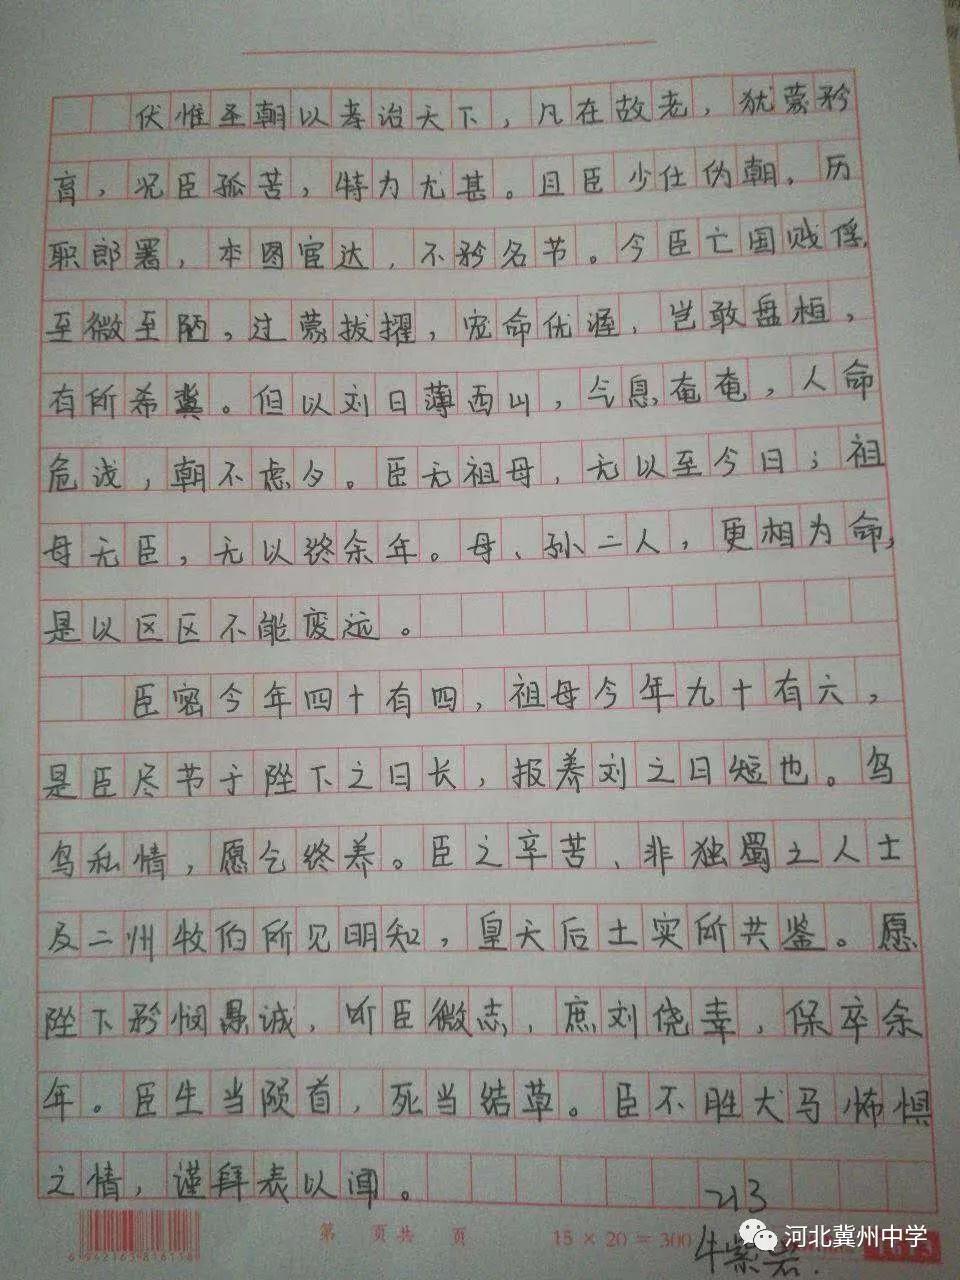 伏惟圣朝以孝治天下，凡在故老，犹蒙矜
育，况臣孤苦，特为尤甚。且臣少仕伪朝，历
职郎署，本图宦达，不矜名节。今臣亡国贱俘，
至微至陋，过蒙拔擢，宠命优渥，岂敢盘桓，
有所希冀。但以刘日薄西山，气息奄奄，人命
危浅，朝不虑夕。臣无祖母，无以至今日；祖
母无臣，无以终余年。母、孙二人，更相为命，
是以区区不能废远。
臣密今年四十有四，祖母今年九十有六，
是臣尽节于陛下之日长，报养刘之日短也。乌
鸟私情，愿乞终养。臣之辛苦、非独蜀之人士
及二州牧伯所见明知，皇天后土实所共鉴。愿
陛下矜悯愚诚，听臣微志，庶刘侥幸，保卒余
年。臣生当陨首，死当结草。臣不胜犬马怖惧
之情，谨拜表以闻。
213
牛紫岩.
第 页共 页
15 × 20 = 300
河北冀州中学